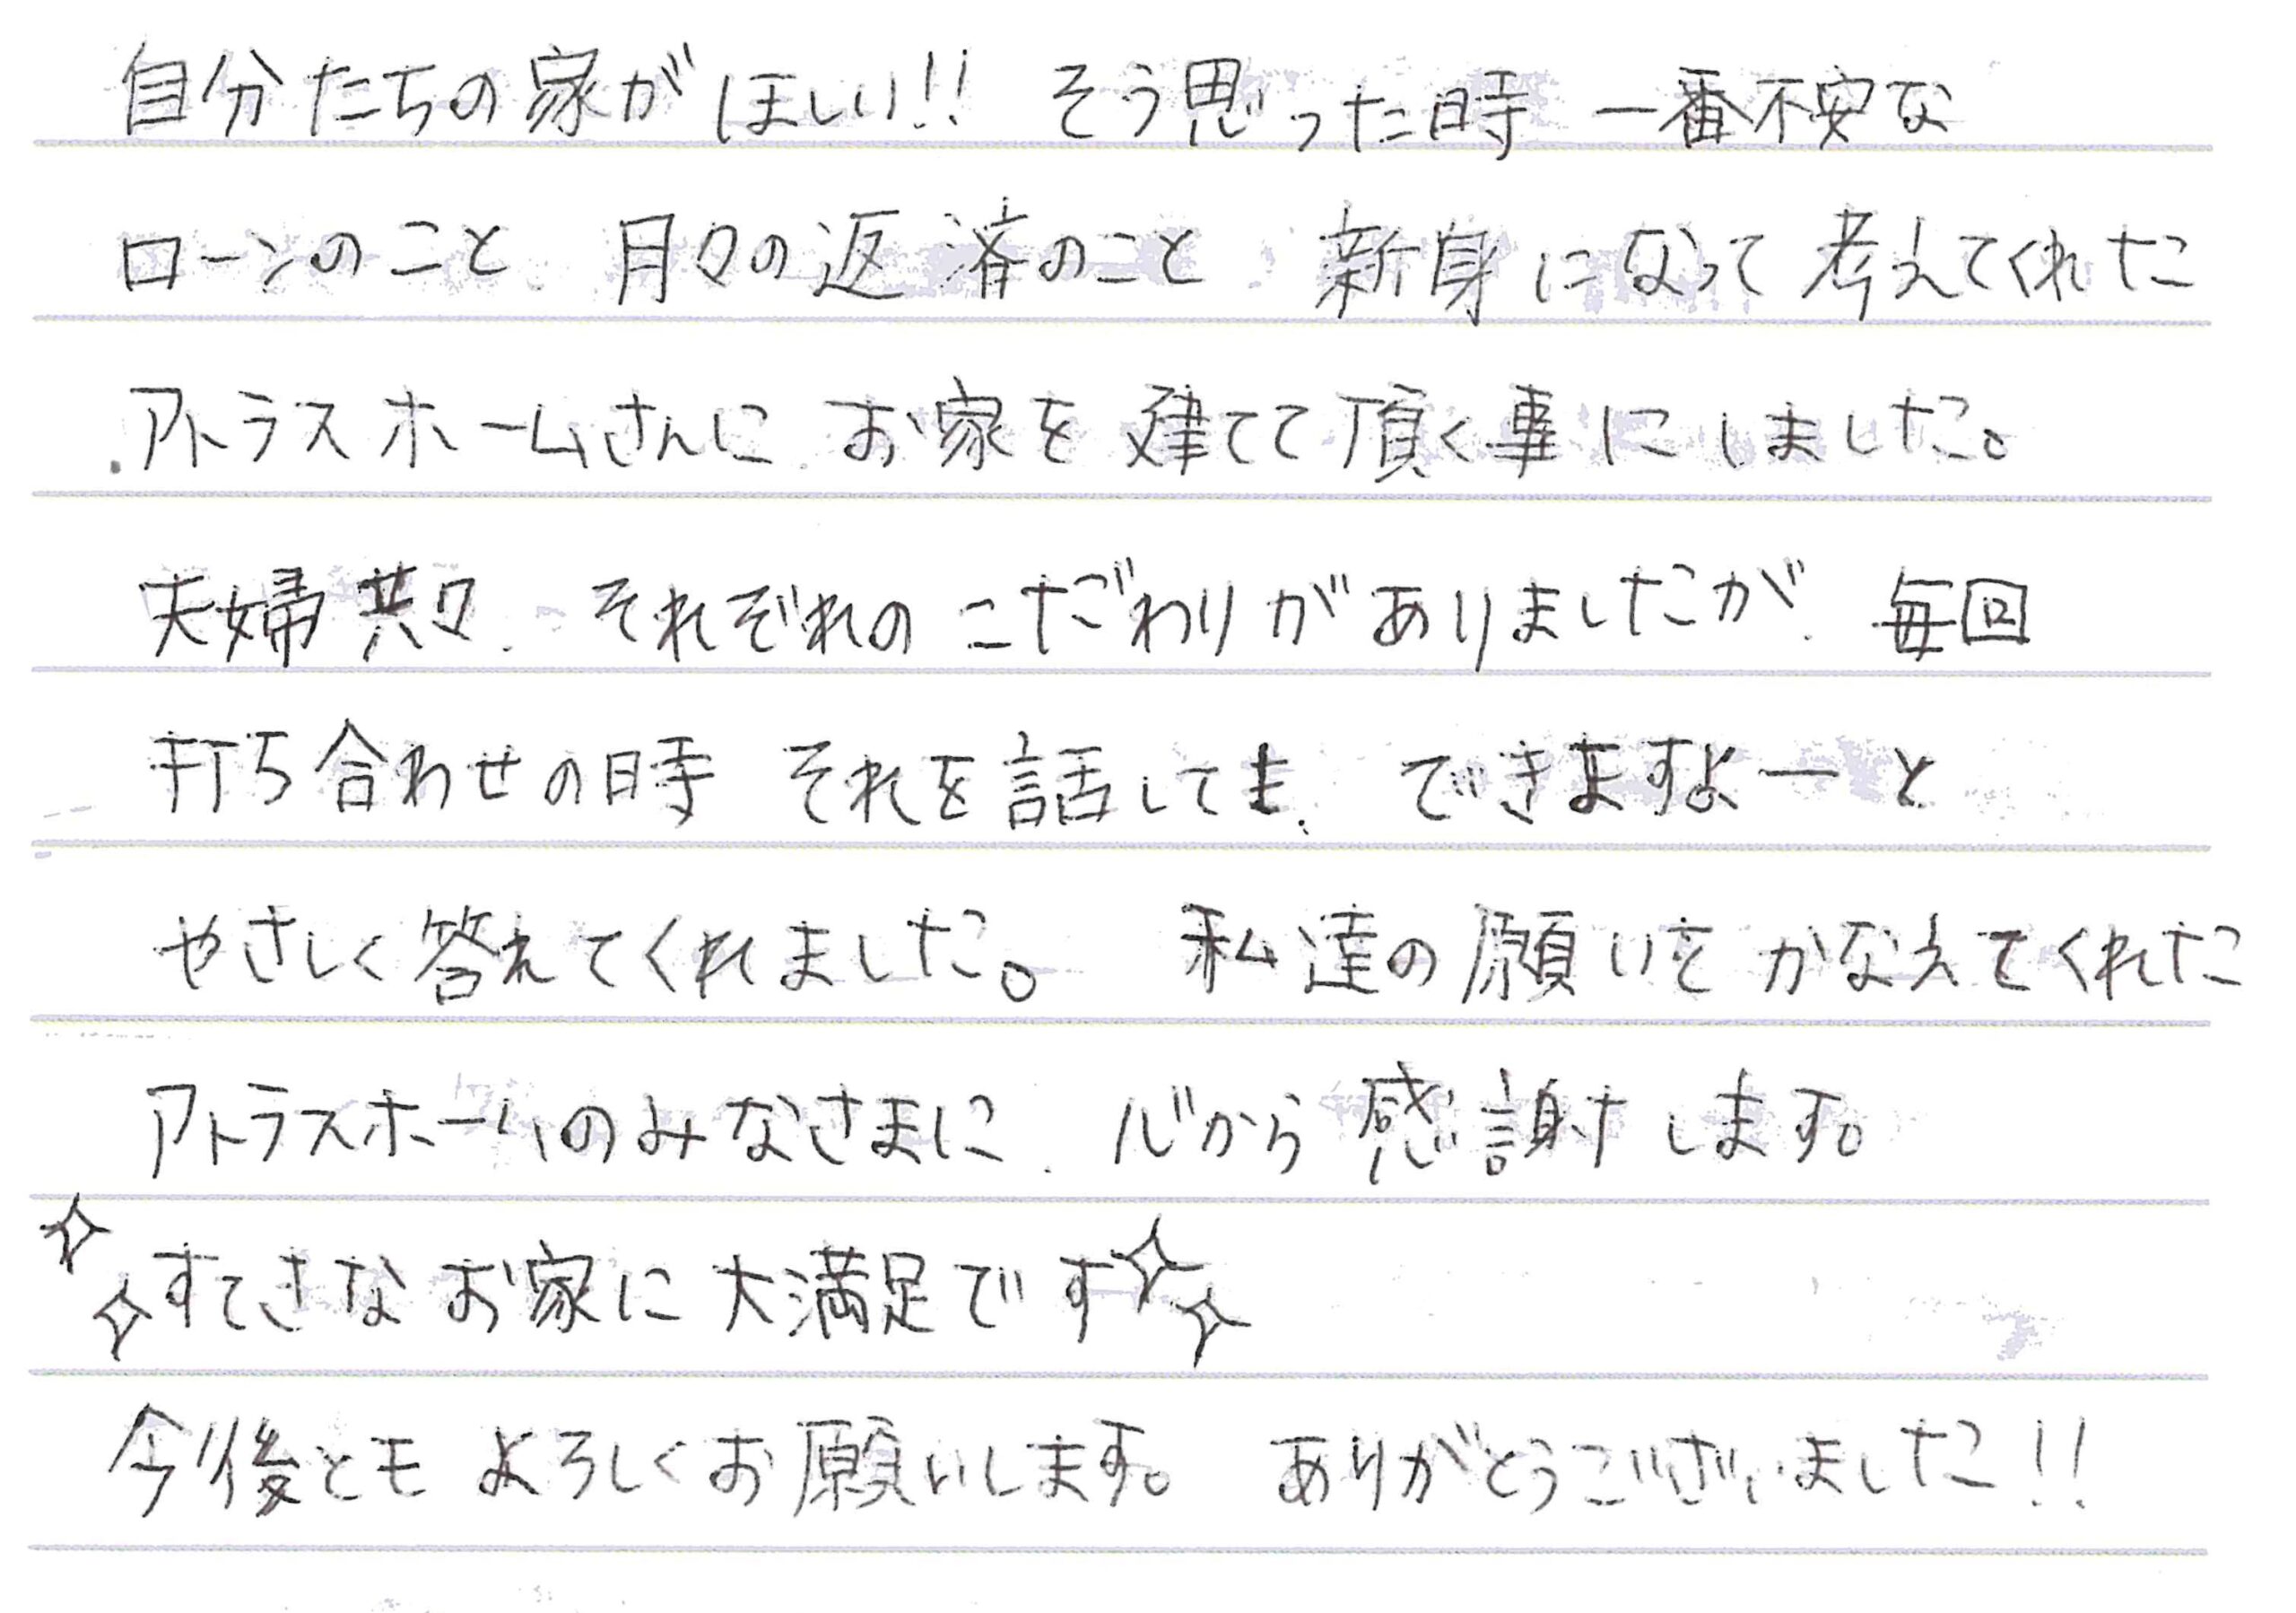 自分たちの家がほしい!! そう思った時 一番不安な
ローンのこと、月々の返済のこと、新身になって考えてくれた
アトラスホームさんに、お家を建てて頂く事にしました。
夫婦共々、それぞれのこだわりがありましたが、毎回
打ち合わせの時 それを話しても、できますよーと
やさしく答えてくれました。 私達の願いをかなえてくれた
アトラスホームのみなさまに、心から感謝します。
すてきなお家に大満足です
今後とも よろしくお願いします。 ありがとうございました!!